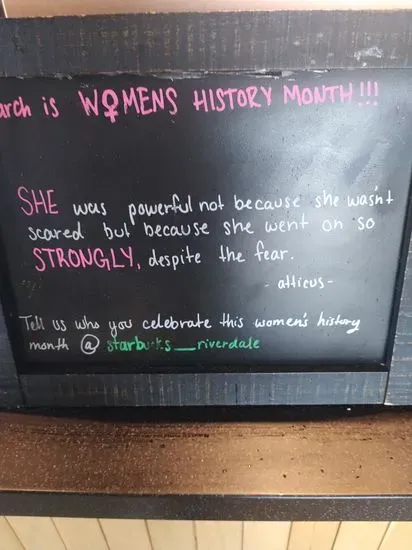 arch is WOMENS HISTORY MONTH!!!
SHE was powerful not because she wasn't
scared but because she went on so
STRONGLY, despite the fear.
- atticus -
Tell us who you celebrate this women's history
month @ starbucks__riverdale